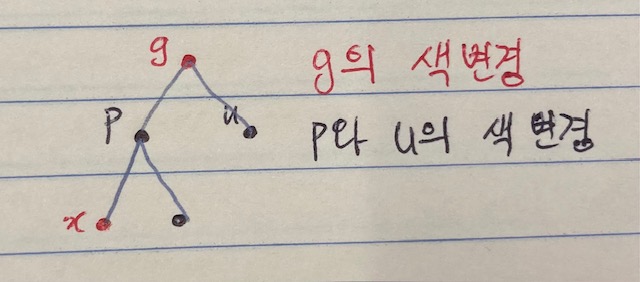 g
g의 색변경
p
u
p와 u의 색 변경
x